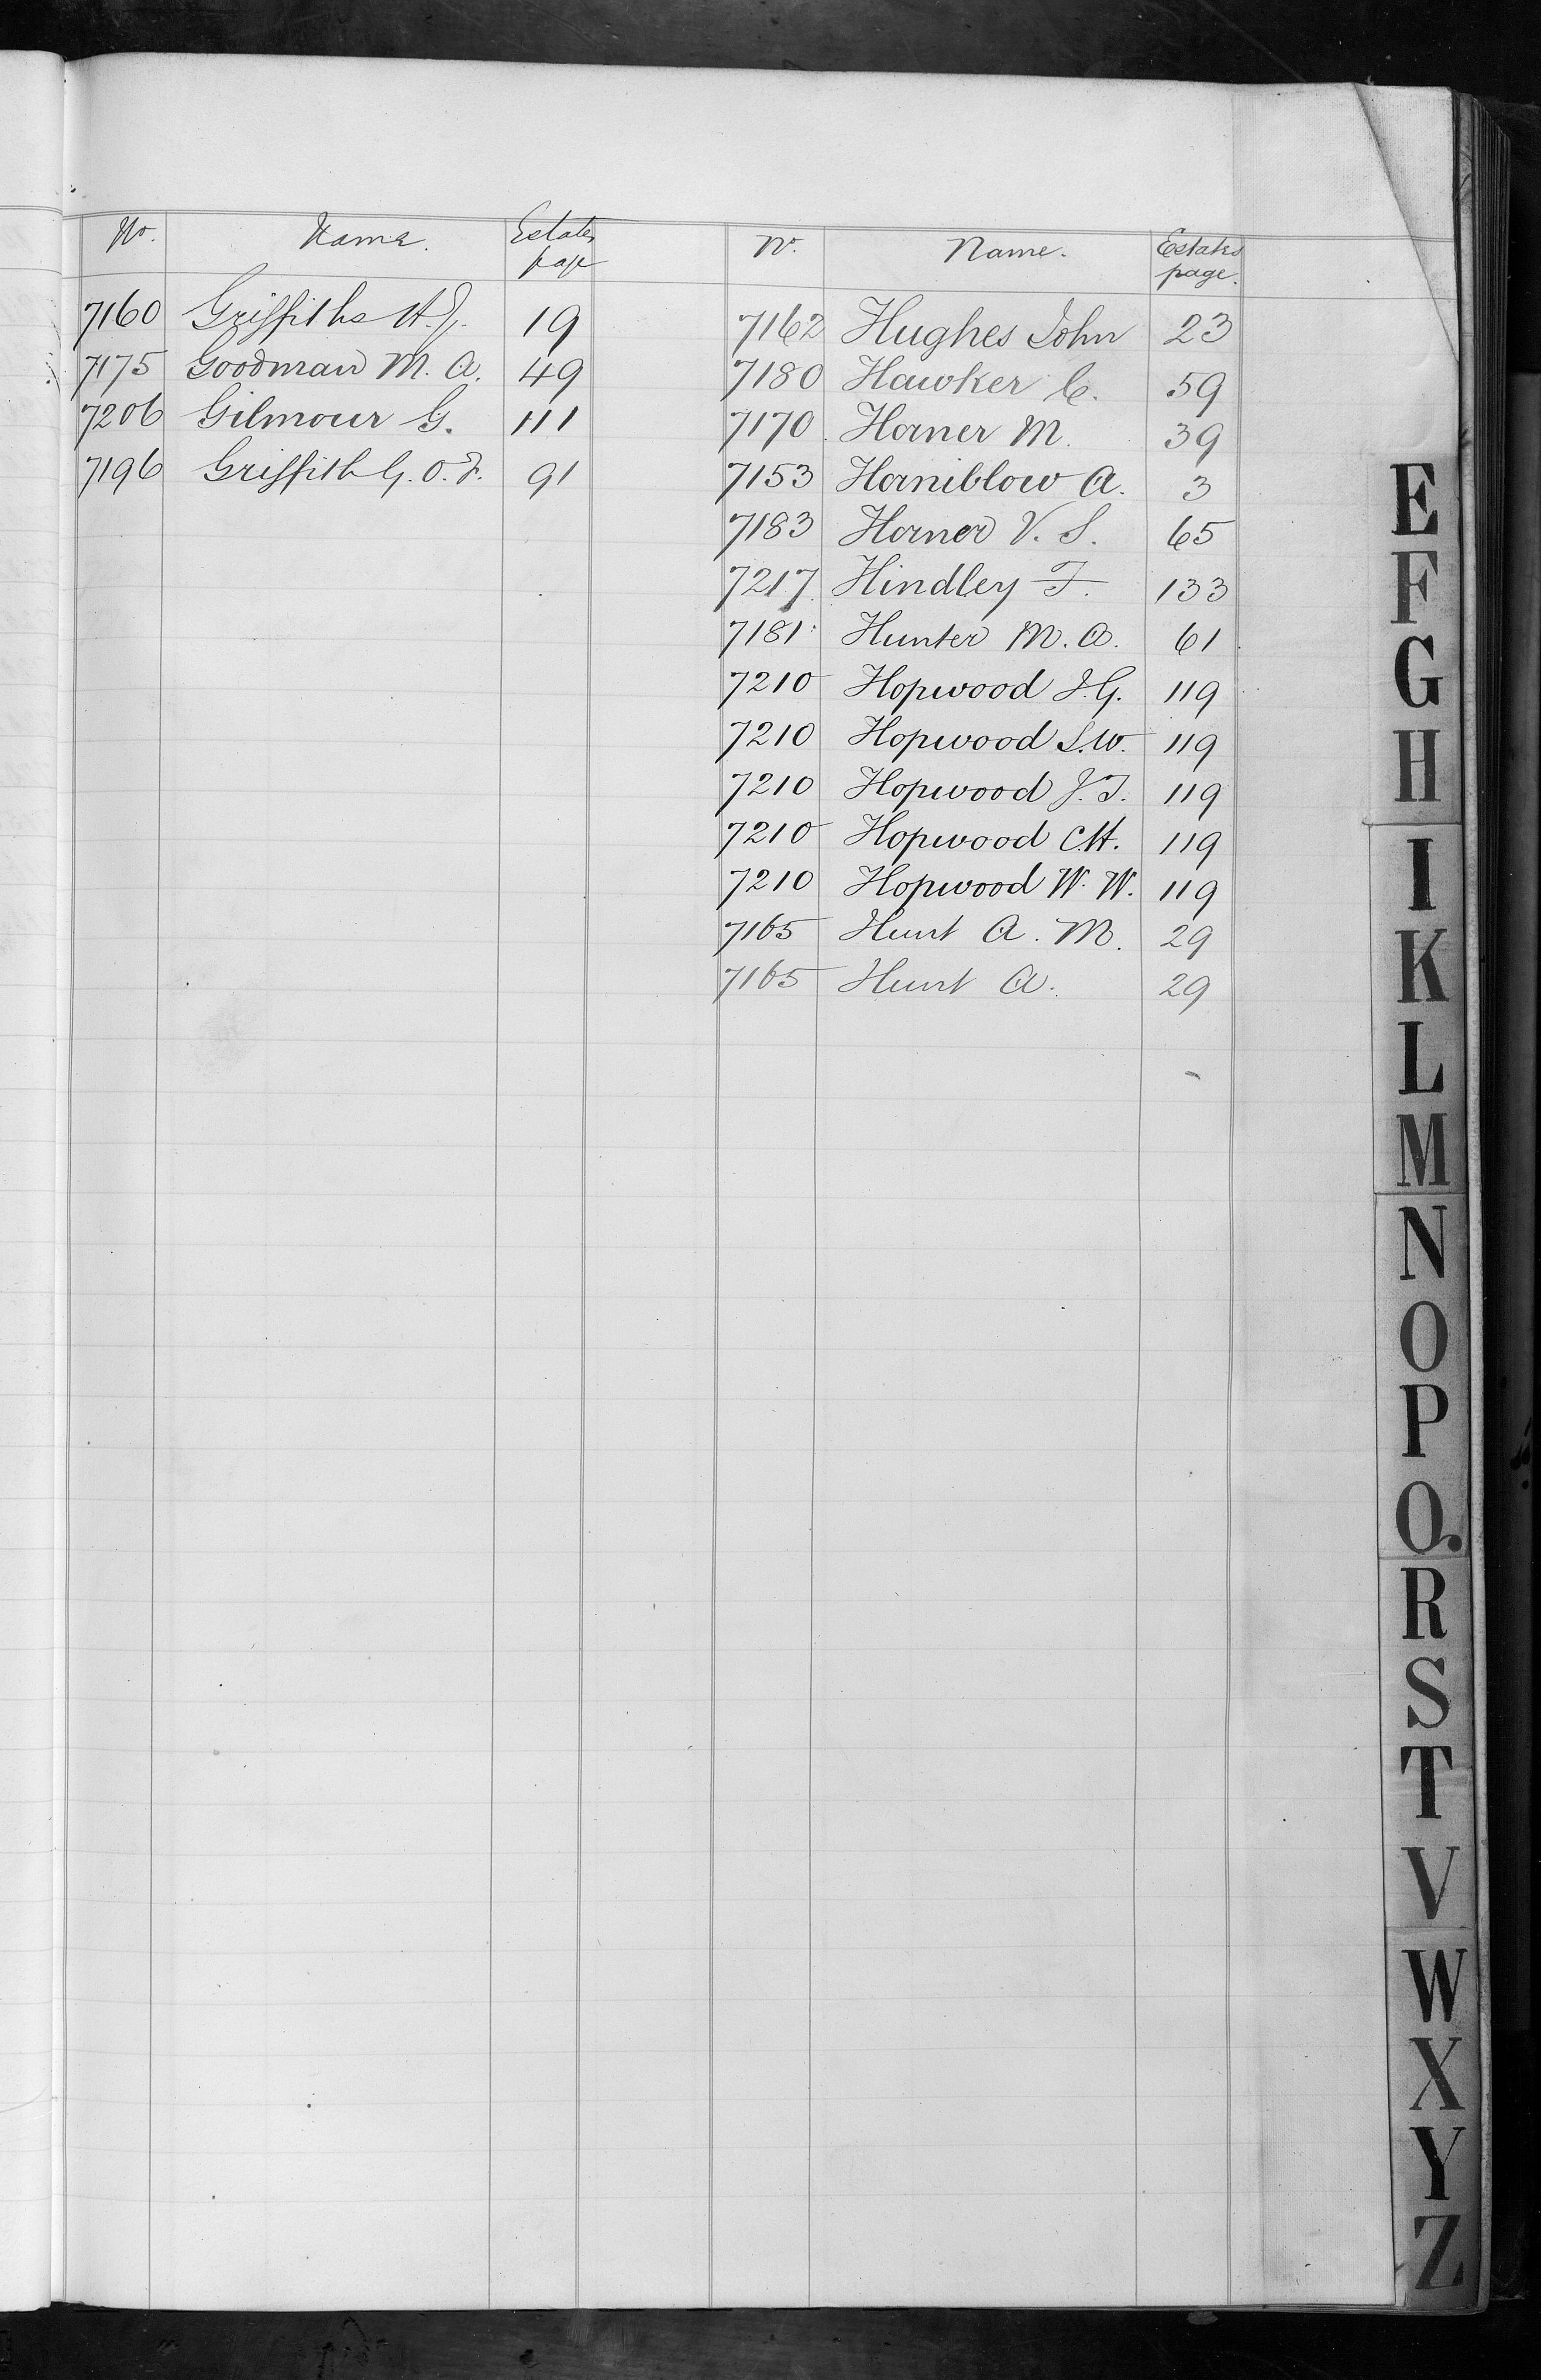 No. Name. Estates page
7160 Griffiths H. J. 19
7175 Goodman M. A. 49
7206 Gilmour G. 111
7196 Griffith G. O. F. 91
No. Name. Estates page.
7162 Hughes John 23
7180 Hawker C. 59
7170 Horner M. 39
7153 Horniblow A. 3
7183 Horner V. S. 65
7217 Hindley F. 133
7181 Hunter M. A. 61
7210 Hopwood J. G. 119
7210 Hopwood S. W. 119
7210 Hopwood J. T. 119
7210 Hopwood C. H. 119
7210 Hopwood W. W. 119
7165 Hunt A. M. 29
7165 Hunt A. 29
E
F
G
H
I
K
L
M
N
O
P
Q
R
S
T
V
W
X
Y
Z